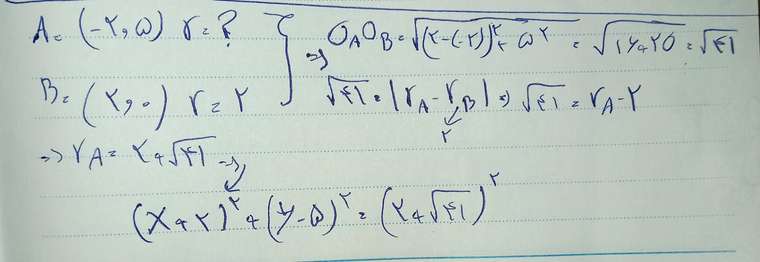 A = (-۲, ۵) r = ?
B = (۲, ۰) r = ۲
=> O_A O_B = √((۲-(-۲))^۲ + ۵^۲) = √(۱۶+۲۵) = √۴۱
√۴۱ = |r_A - r_B| => √۴۱ = r_A - ۲
۲
=> r_A = ۲ + √۴۱ =>
(x + ۲)^۲ + (y - ۵)^۲ = (۲ + √۴۱)^۲